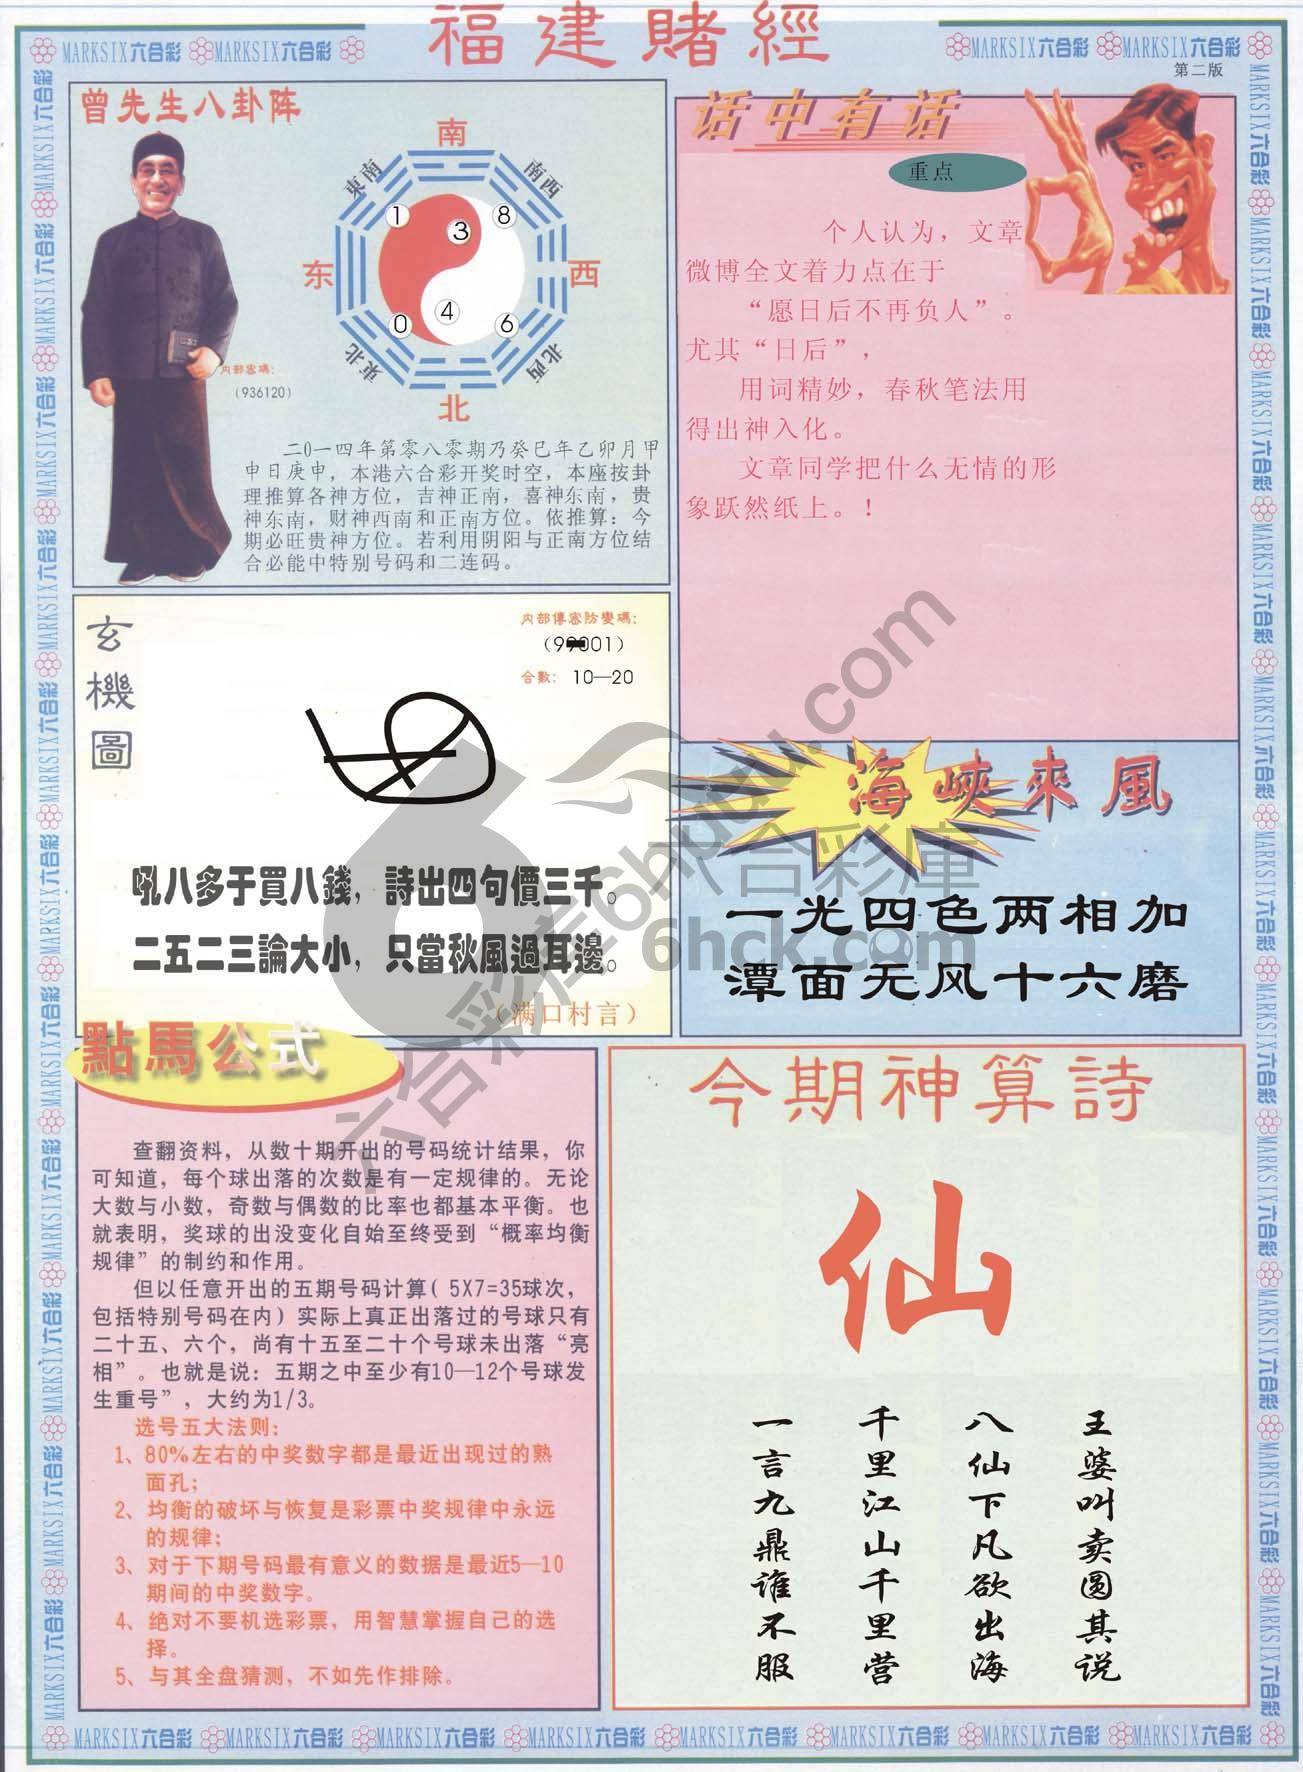 福建賭經
MARKSIX六合彩 MARKSIX六合彩
MARKSIX六合彩 MARKSIX六合彩
第二版
曾先生八卦阵
南
東南
南西
1
8
3
东
西
4
0
6
東北
北西
北
内部密碼：
（936120）
二0一四年第零八零期乃癸巳年乙卯月甲
申日庚申，本港六合彩开奖时空，本座按卦
理推算各神方位，吉神正南，喜神东南，贵
神东南，财神西南和正南方位。依推算：今
期必旺贵神方位。若利用阴阳与正南方位结
合必能中特别号码和二连码。
话中有话
重点
个人认为，文章
微博全文着力点在于
“愿日后不再负人”。
尤其“日后”，
用词精妙，春秋笔法用
得出神入化。
文章同学把什么无情的形
象跃然纸上。！
玄機圖
内部傳密防變碼：
合數： 10—20
吼八多于買八錢，詩出四句價三千。
二五二三論大小，只當秋風過耳邊。
（满口村言）
海峽來風
一光四色两相加
潭面无风十六磨
六合彩库6hpudu.com
六合彩庫
6hck.com
點馬公式
查翻资料，从数十期开出的号码统计结果，你
可知道，每个球出落的次数是有一定规律的。无论
大数与小数，奇数与偶数的比率也都基本平衡。也
就表明，奖球的出没变化自始至终受到“概率均衡
规律”的制约和作用。
但以任意开出的五期号码计算（5X7=35球次，
包括特别号码在内）实际上真正出落过的号球只有
二十五、六个，尚有十五至二十个号球未出落“亮
相”。也就是说：五期之中至少有10—12个号球发
生重号”，大约为1/3。
选号五大法则：
1、80%左右的中奖数字都是最近出现过的熟
面孔；
2、均衡的破坏与恢复是彩票中奖规律中永远
的规律；
3、对于下期号码最有意义的数据是最近5—10
期间的中奖数字。
4、绝对不要机选彩票，用智慧掌握自己的选
择。
5、与其全盘猜测，不如先作排除。
今期神算詩
仙
王婆叫卖圆其说
八仙下凡欲出海
千里江山千里营
一言九鼎谁不服
MARKSIX六合彩 MARKSIX六合彩 MARKSIX六合彩 MARKSIX六合彩 MARKSIX六合彩 MARKSIX六合彩 MARKSIX六合彩 MARKSIX六合彩